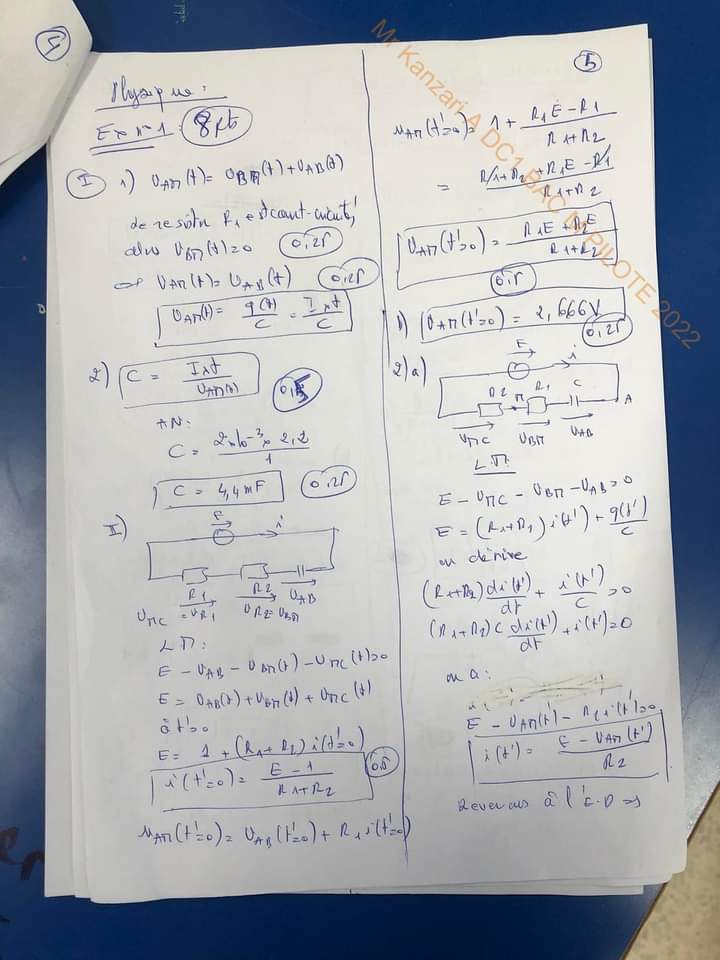 4
Physique :
Ex n°1 : 8 pts
I 1) U_AM(t) = U_BM(t) + U_AB(t)
R1 est court-circuité
alors U_BM(t) = 0 0,25
U_AM(t) = U_AB(t) 0,25
U_AM(t) = q(t)/C = I x t/C
2) C = I x t/U_AM(t) 0,5
AN:
C = 2x10^-3 x 2,2/1
C = 4,4 mF 0,25
II) E i'
R1 R2 U_AB
U_MC = U_R1 U_R2 = U_BM
LM:
E - U_AB - U_BM(t) - U_MC(t) = 0
E = U_AB(t) + U_BM(t) + U_MC(t)
à t' = 0
E = 1 + (R1+R2) i(t'=0)
i(t'=0) = E - 1/R1+R2 0,5
u_AM(t'=0) = U_AB(t'=0) + R1 i(t'=0)
5
u_AM(t'=0) = 1 + R1E - R1/R1+R2
= R1+R2+R1E-R1/R1+R2
U_AM(t'=0) = R1E + R2/R1+R2
0,5
b) U_AM(t'=0) = 2,666V
0,25
2) a) E i
R2 M R1 C A
U_MC U_BM U_AB
LM:
E - U_MC - U_BM - U_AB = 0
E = (R1+R2) i(t') + q(t')/C
on dérive
(R1+R2) di(t')/dt + i(t')/C = 0
(R1+R2) C di(t')/dt + i(t') = 0
on a :
E - U_AM(t') - R2 i(t') = 0
i(t') = E - U_AM(t')/R2
Revenons à l'E.D =>
Mr Kanzari A DC1 BAC M PILOTE 2022